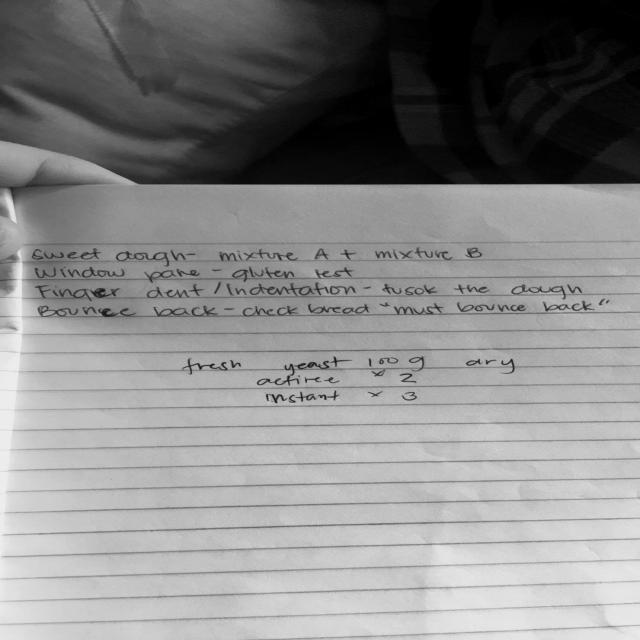 Sweet dough- mixture A + mixture B
Window pane - gluten test
Finger dent / Indentation - tusok the dough
Bounce back - check bread "must bounce back"
fresh yeast 100 g dry
active × 2
instant × 3